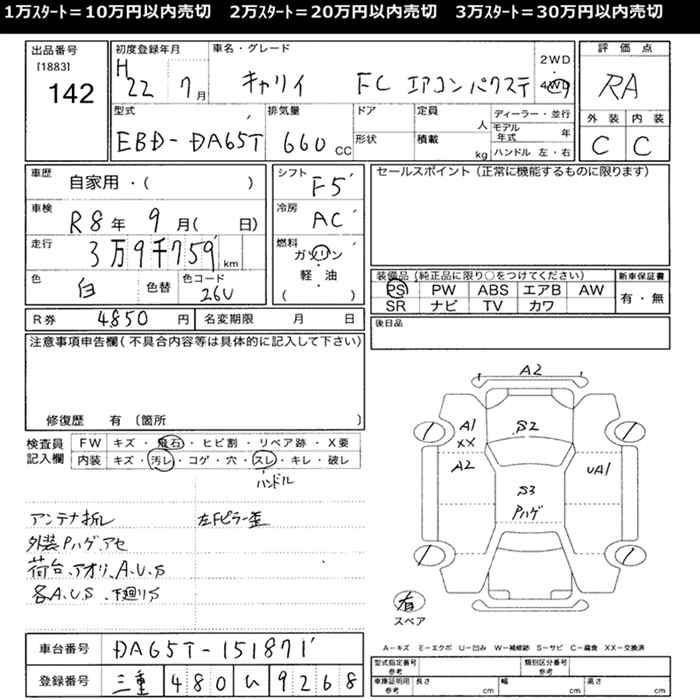 1万スタート=10万円以内売切　2万スタート=20万円以内売切　3万スタート=30万円以内売切
出品番号
[1883]
142
初度登録年月
H22 7月
車名・グレード
キャリイ FC エアコンパワステ
2WD
4WD
評価点
RA
外装 内装
C C
型式
EBD-DA65T
排気量
660 CC
ドア
形状
定員
人
積載
kg
ディーラー・並行
モデル年式 年
ハンドル 左・右
車歴
自家用・( )
車検
R8年 9月( 日)
走行
3万9千759 km
色
白
色替
色コード
26U
シフト
F5
冷房
AC
燃料
ガソリン
軽・油
( )
セールスポイント(正常に機能するものに限ります)
装備品(純正品に限り○をつけてください)
PS PW ABS エアB AW
SR ナビ TV カワ
新車保証書
有・無
R券 4850円 名変期限 月 日
後日品
注意事項申告欄(不具合内容等は具体的に記入して下さい)
修復歴 有〔箇所 〕
検査員記入欄
FW キズ・飛石・ヒビ割・リペア跡・X要
内装 キズ・汚レ・コゲ・穴・スレ・キレ・破レ
ハンドル
アンテナ折レ 左Fピラー歪
外装Pハゲ、アセ
荷台、アオリ、A.U.S
各A.U.S、下廻りS
A2
A1
XX
S2
A2
UA1
S3
Pハゲ
有
スペア
車台番号 DA65T-151871
登録番号 三重 480 い 9268
A−キズ E−エクボ U−凹み W−補修跡 S−サビ C−腐食 XX−交換済
型式指定番号 参考
類別区分番号 参考
車庫証明用 参考
長さ cm 幅 cm 高さ cm